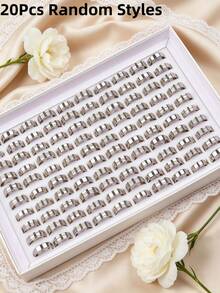 20Pcs Random Styles